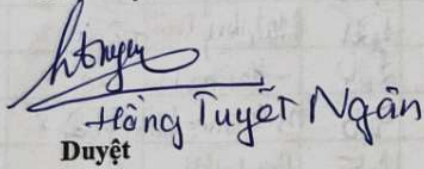 Hồng Tuyết Ngân
Duyệt